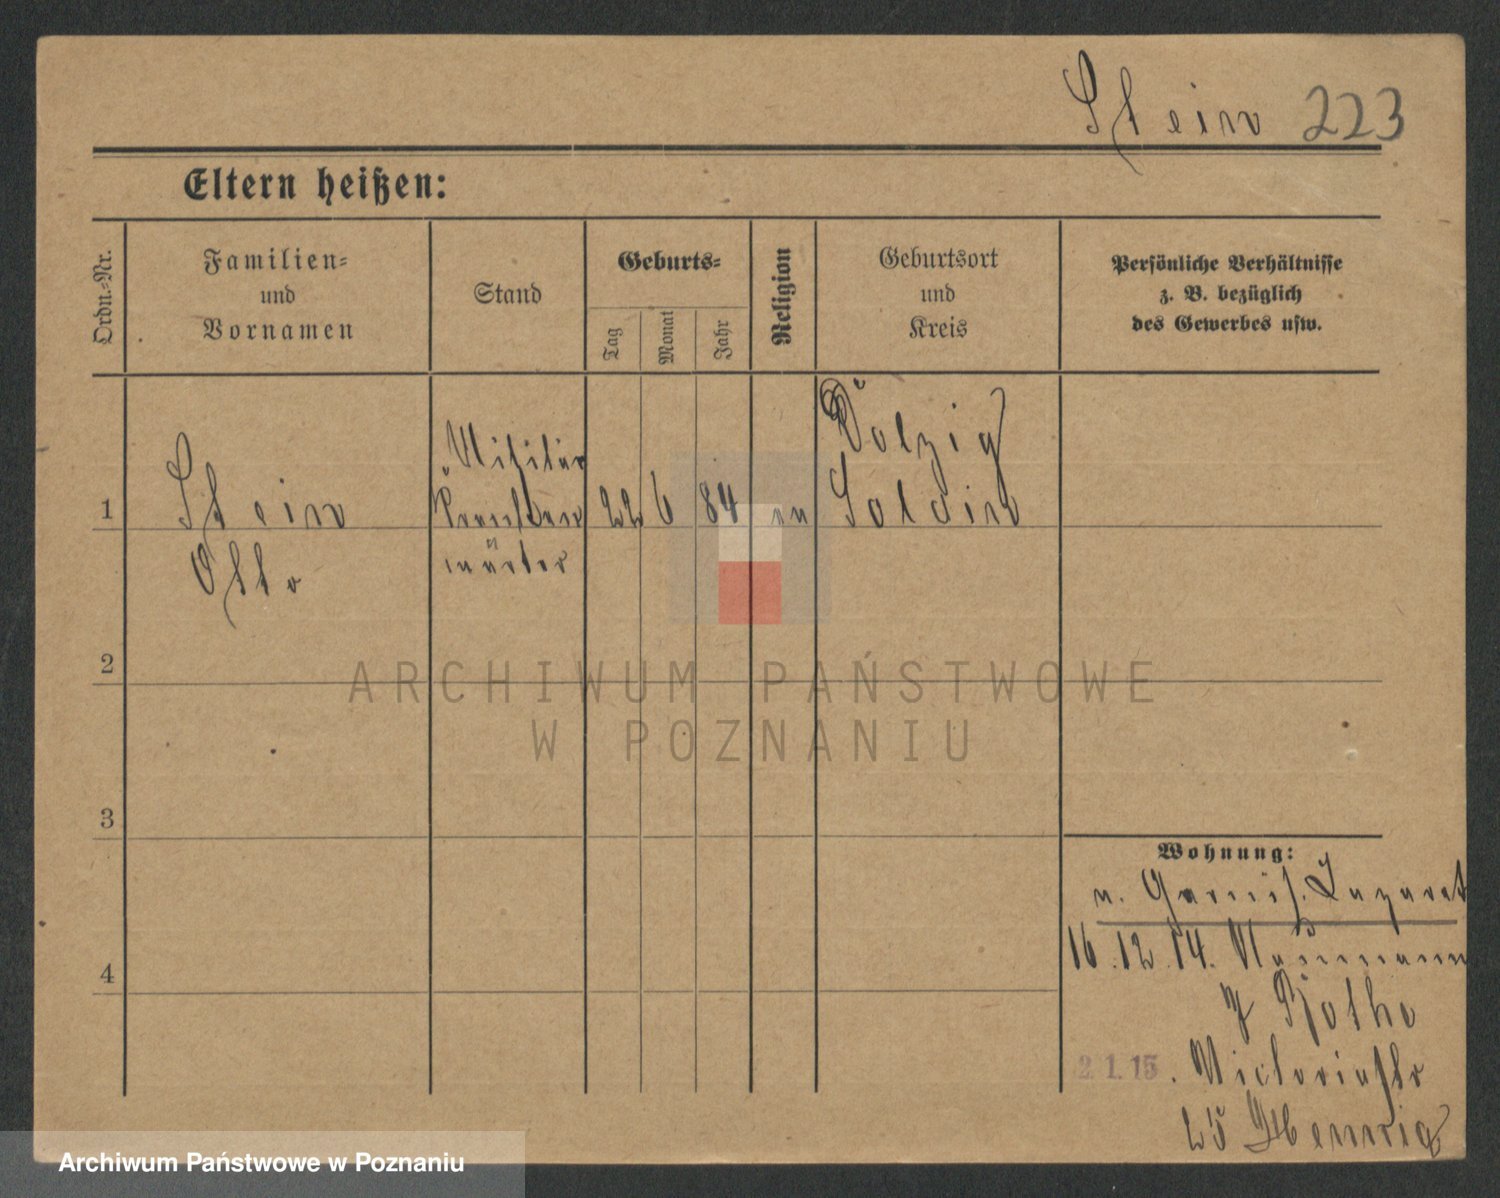 Stein 223
Eltern heißen:
Ordn.-Nr.
Familien-
und
Vornamen
Stand
Geburts-
Tag
Monat
Jahr
Religion
Geburtsort
und
Kreis
Persönliche Verhältnisse
z. B. bezüglich
des Gewerbes usw.
1
Stein
Otto
Militär
Krankenwärter
22 6 84 ev
Dölzig
Soldin
2
3
4
Wohnung:
n. Garnis. Lazaret
16.12.14. Naumann
7 Rothe
2.1.15. Victoriastr
25 Hennig
ARCHIWUM PAŃSTWOWE
W POZNANIU
Archiwum Państwowe w Poznaniu